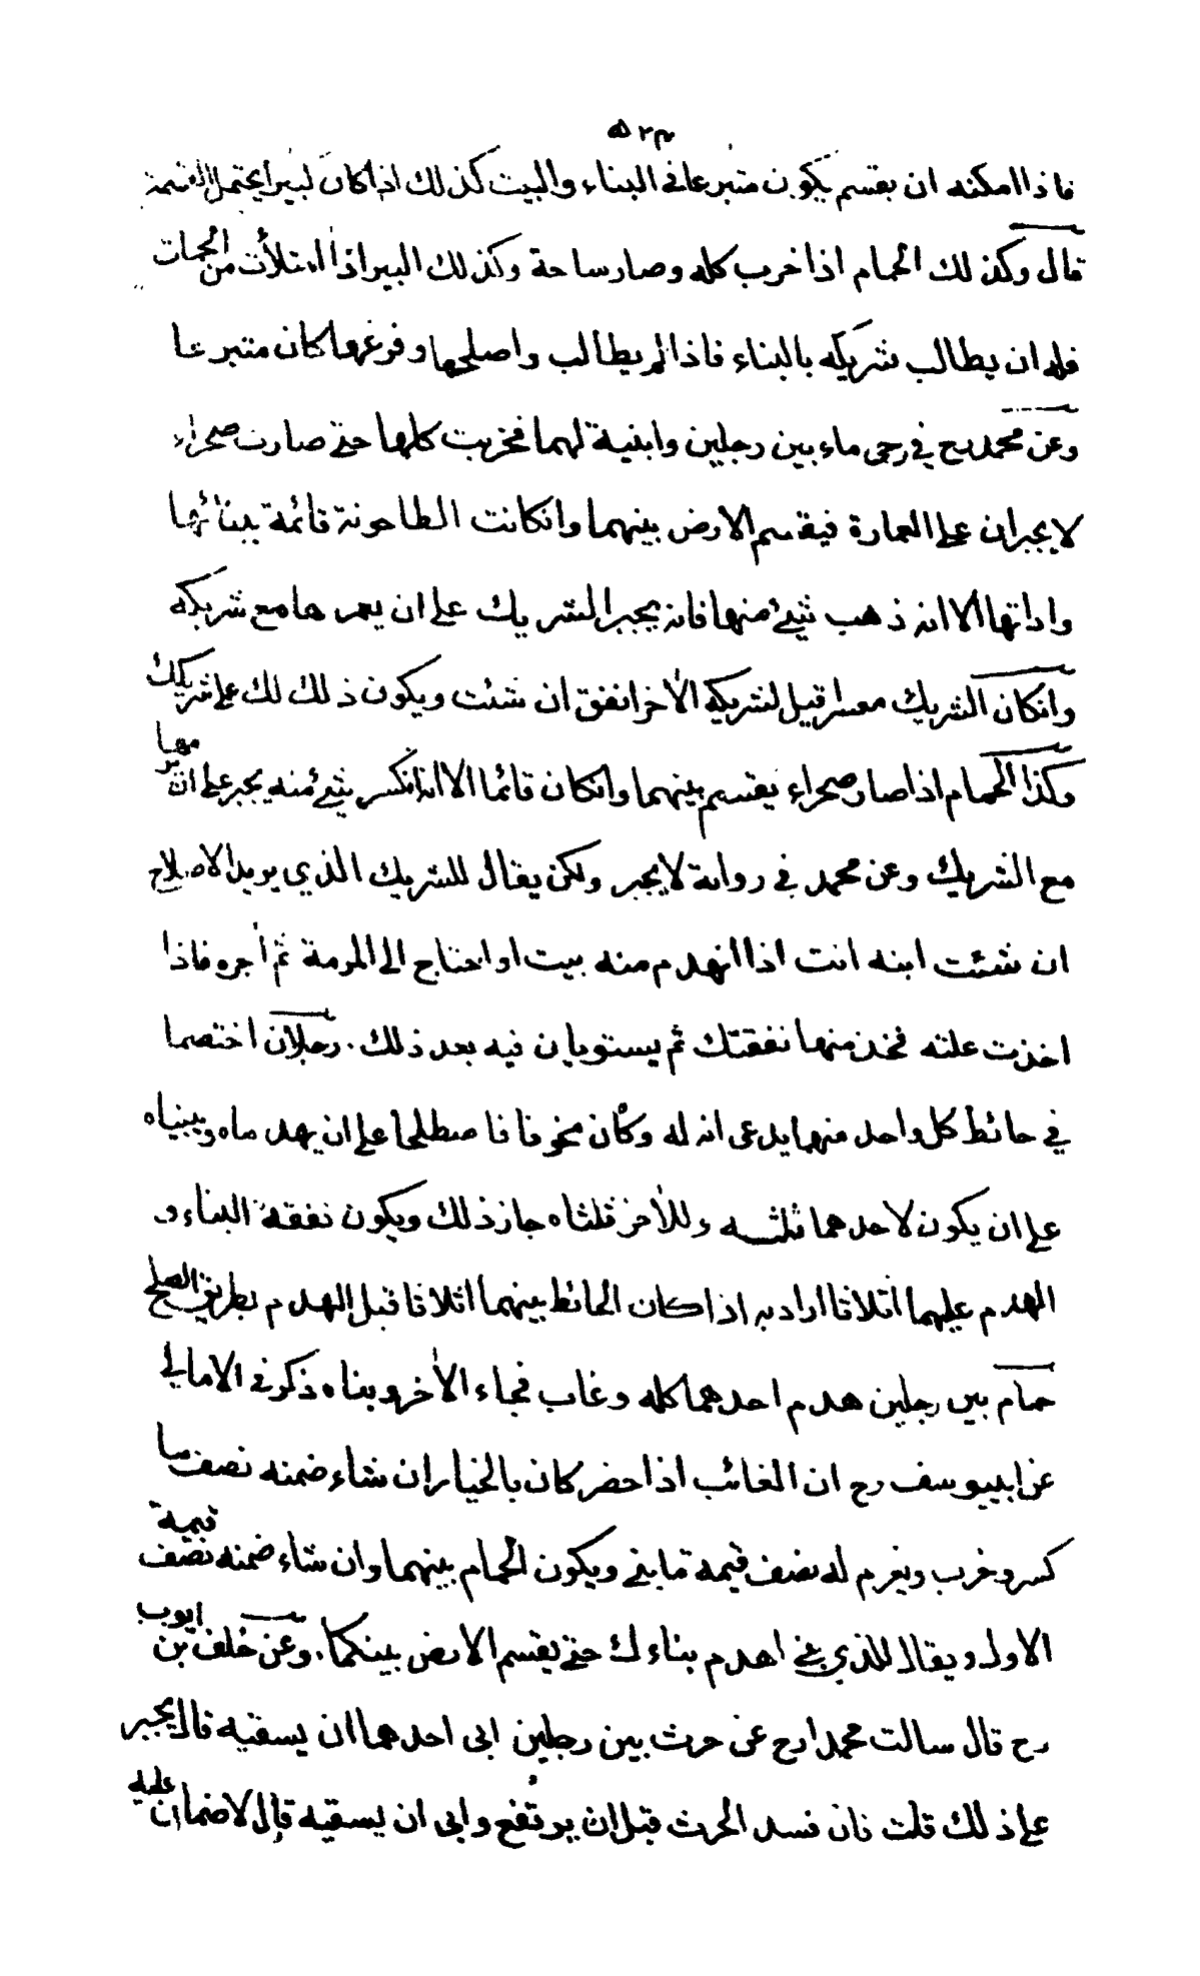 فاذا امكنه ان يقسم يكون متبرعا في البناء والبيت كذلك اذا كان كبيرا يحتمل القسمة
قال وكذلك الحمام اذا خرب كله وصار ساحة وكذلك البير اذا امتلأت من الحمات
فله ان يطالب شريكه بالبناء فاذا لم يطالب واصلحها وفرغها كان متبرعا
وعن محمد رح في رحى ماء بين رجلين وابنية لهما فخربت كلها حتى صارت صحراء
لا يجبران على العمارة فيقسم الارض بينهما وانكانت الطاحونة قائمة ببنائها
واداتها الا انه ذهب شئ منها فانه يجبر الشريك على ان يعمرها مع شريكه
وانكان الشريك معسرا قيل لشريكه الآخر انفق ان شئت ويكون ذلك لك على شريكك
وكذا الحمام اذا صار صحراء يقسم بينهما وانكان قائما الا انه انكسر شئ منه يجبر على ان يرمها
مع الشريك وعن محمد في رواية لا يجبر ولكن يقال للشريك الذي يريد الاصلاح
ان شئت ابنه انت اذا انهدم منه بيت او احتاج الى المرمة ثم أجره فاذا
اخذت غلته فخذ منها نفقتك ثم يستويان فيه بعد ذلك. رجلان اختصما
في حائط كل واحد منهما يدعى انه له وكان مخوفا فاصطلحا على ان يهدماه ويبنياه
على ان يكون لاحدهما ثلثه وللآخر ثلثاه جاز ذلك ويكون نفقة البناء و
الهدم عليهما اثلاثا اراد به اذا كان الحائط بينهما اثلاثا قبل الهدم بطريق الصلح
حمام بين رجلين هدم احدهما كله وغاب فجاء الآخر وبناه ذكر في الامالي
عن ابييوسف رح ان الغائب اذا حضر كان بالخيار ان شاء ضمنه نصف ما
كسر وخرب ويغرم له نصف قيمة ما بنى ويكون الحمام بينهما وان شاء ضمنه نصف قيمة
الاول ويقال للذي بنى اهدم بناءك حتى يقسم الارض بينكما. وعن خلف بن ايوب
رح قال سالت محمدا رح عن حرث بين رجلين ابى احدهما ان يسقيه قال يجبر
على ذلك قلت فان فسد الحرث قبل ان يرتفع وابى ان يسقيه قال لا ضمان عليه